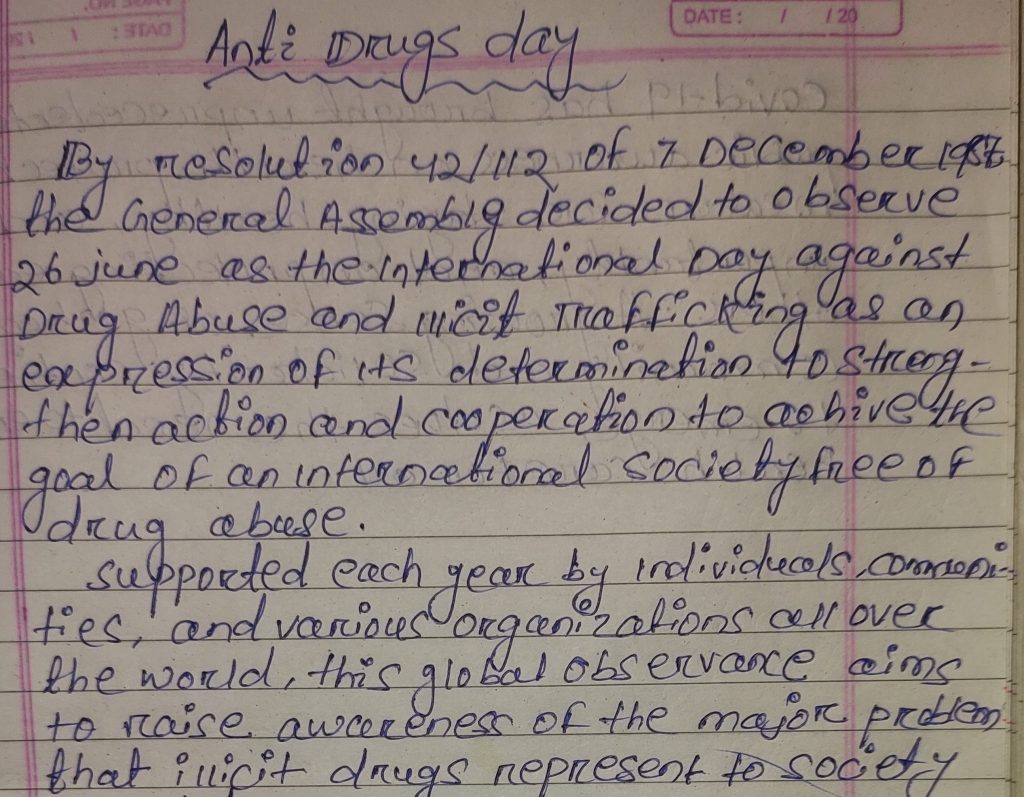 DATE: / /20
Anti Drugs day
By resolution 42/112 of 7 December 1987
the General Assembly decided to observe
26 june as the International Day against
Drug Abuse and illicit Trafficking as an
expression of its determination to streng-
then action and cooperation to achive the
goal of an international society free of
drug abuse.
supported each year by individuals, communi-
ties, and various organizations all over
the world, this global observance aims
to raise awareness of the major problem
that illicit drugs represent to society